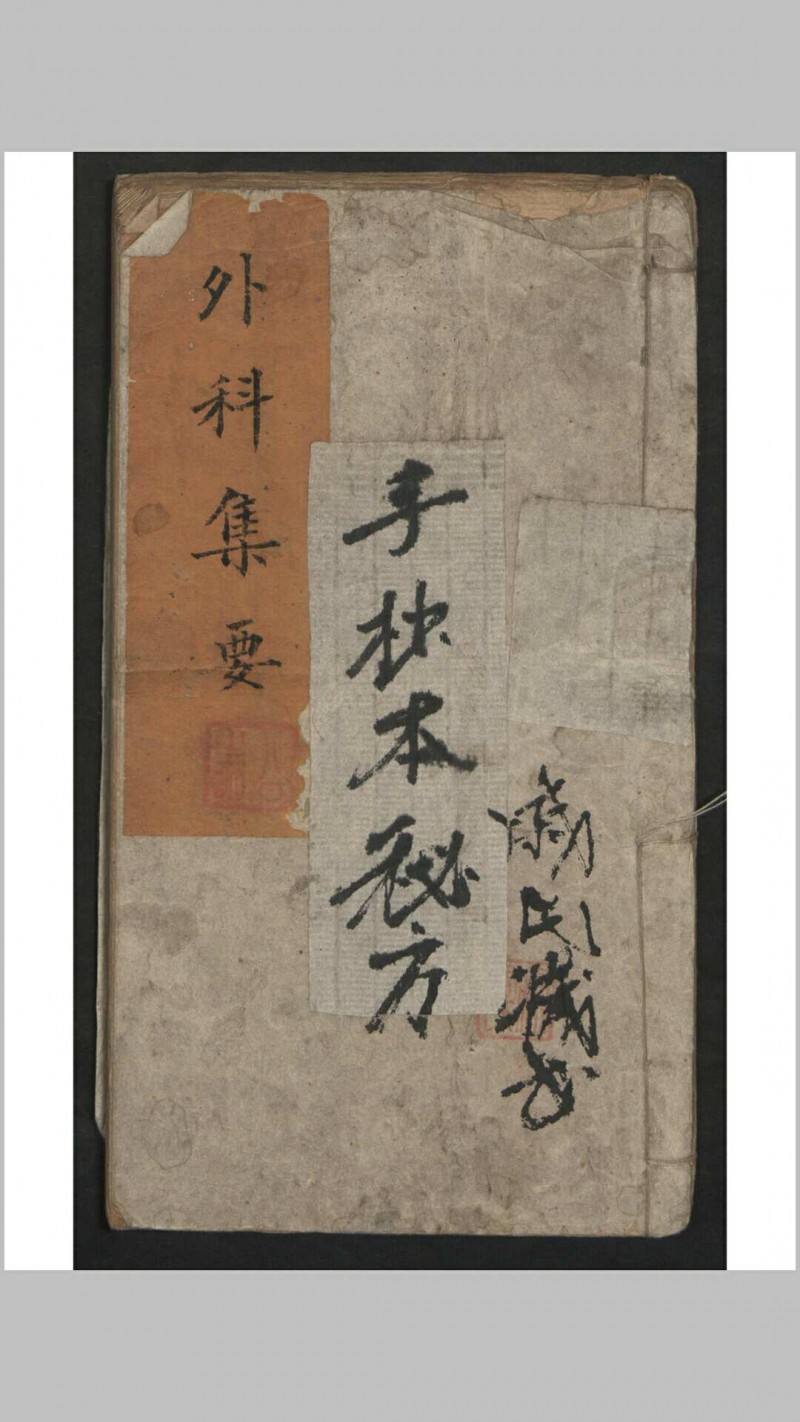 外科集要
手抄本秘方
民藏书